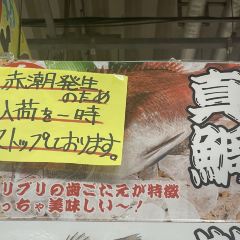 赤潮発生
のため
入荷を一時
ストップしております。
真鯛
プリプリの歯ごたえが特徴
っちゃ美味しい〜!